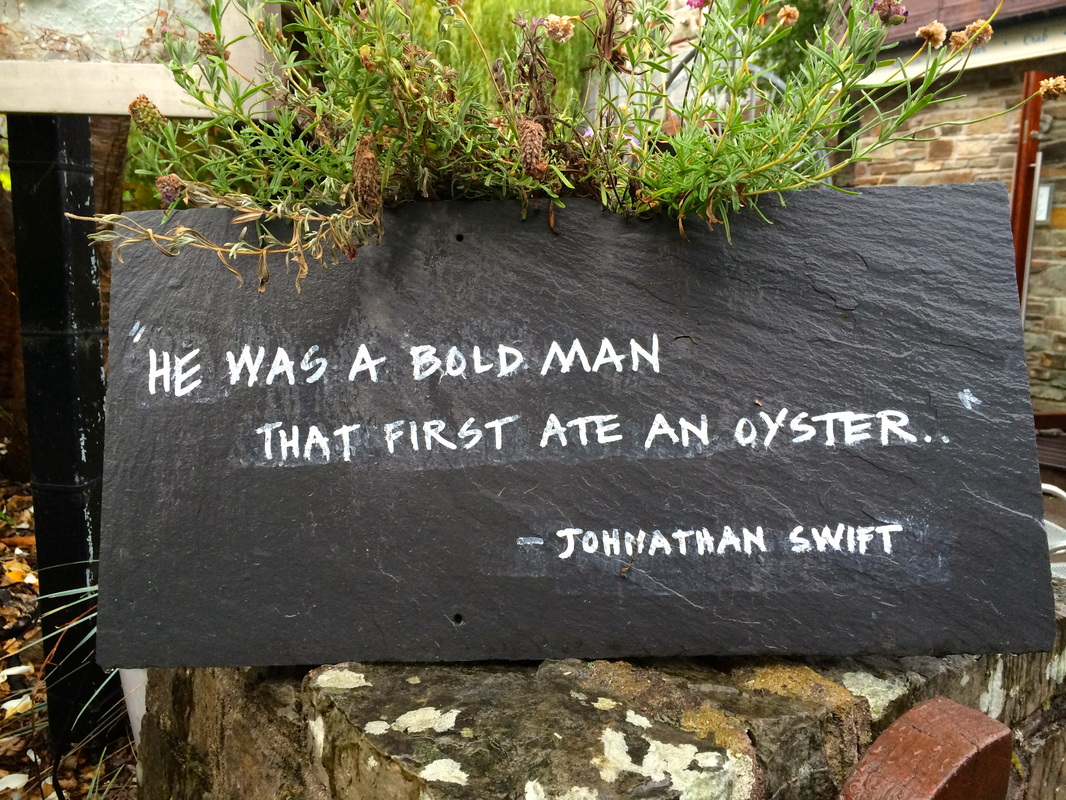 "HE WAS A BOLD MAN
THAT FIRST ATE AN OYSTER.."
- JOHNATHAN SWIFT